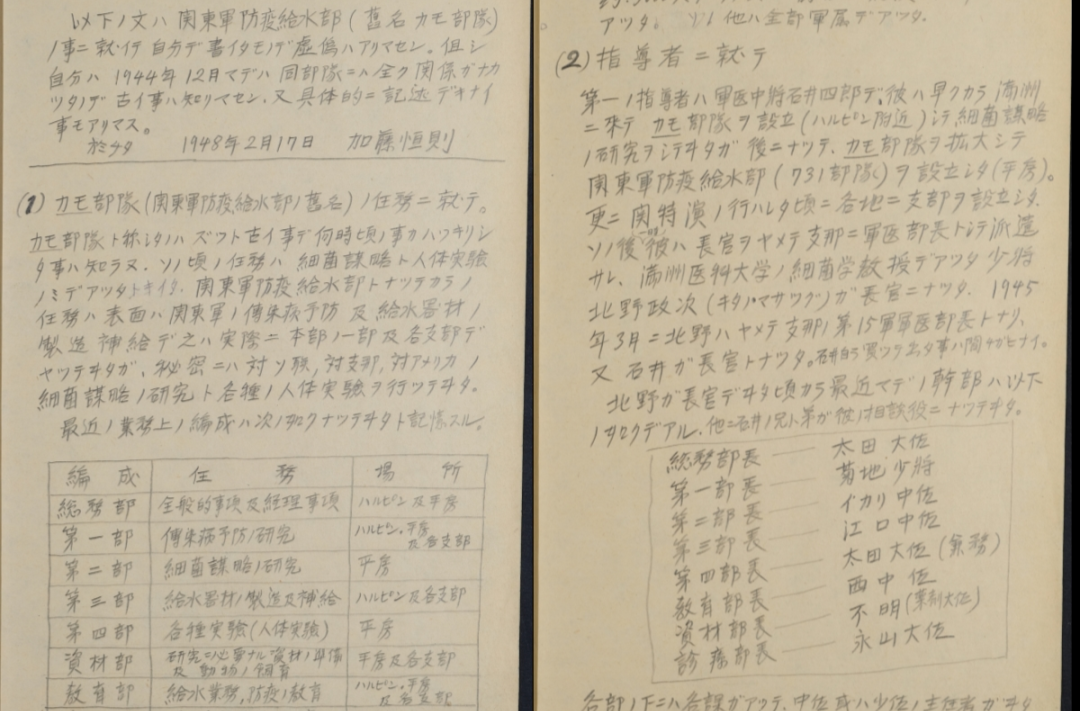 以下ノ文ハ関東軍防疫給水部(舊名カモ部隊)
ノ事ニ就イテ自分デ書イタモノデ虚偽ハアリマセン。但シ
自分ハ1944年12月マデハ同部隊ニハ全ク関係ガナカ
ツタノデ古イ事ハ知リマセン.又具体的ニ記述デキナイ
事モアリマス。
於チタ 1948年2月17日 加藤恒則
(1)カモ部隊(関東軍防疫給水部ノ舊名)ノ任務ニ就テ。
カモ部隊ト称シタノハズツト古イ事デ何時頃ノ事カハツキリシ
タ事ハ知ラヌ.ソノ頃ノ任務ハ細菌謀略ト人体実験
ノミデアツタトキイタ.関東軍防疫給水部トナツテカラノ
任務ハ表面ハ関東軍ノ傳染病予防及給水器材ノ
製造補給デ之ハ実際ニ本部ノ一部及各支部デ
ヤツテヰタガ.秘密ニハ対ソ聯,対支那,対アメリカノ
細菌謀略ノ研究ト各種ノ人体実験ヲ行ツテヰタ。
最近ノ業務上ノ編成ハ次ノ如クナツテヰタト記憶スル。
編成 任務 場所
総務部 全般的事項及経理事項 ハルピン及平房
第一部 傳染病予防ノ研究 ハルピン.平房及各支部
第二部 細菌謀略ノ研究 平房
第三部 給水器材ノ製造及補給 ハルピン及各支部
第四部 各種実験(人体実験) 平房
資材部 研究ニ必要ナル資材ノ準備及動物ノ飼育 平房及各支部
教育部 給水業務,防疫ノ教育 ハルピン.平房及各支部
アツタ。 他ハ全部軍属デアツタ。
(2)指導者ニ就テ
第一ノ指導者ハ軍医中將石井四郎デ,彼ハ早クカラ満洲
ニ來テカモ部隊ヲ設立(ハルピン附近)シテ細菌謀略
ノ研究ヲシテヰタガ後ニナツテ.カモ部隊ヲ拡大シテ
関東軍防疫給水部(731部隊)ヲ設立シタ(平房)。
更ニ関特演ノ行ハレタ頃ニ各地ニ支部ヲ設立シタ.
ソノ後彼ハ長官ヲヤメテ支那ニ軍医部長トシテ派遣
サレ、満洲医科大学ノ細菌学教授デアツタ少將
北野政次(キタノマサツグ)ガ長官ニナツタ. 1945
年3月ニ北野ハヤメテ支那ノ第15軍軍医部長トナリ、
又石井ガ長官トナツタ。
北野ガ長官デヰタ頃カラ最近マデノ幹部ハ以下
ノ如クデアル.他ニ石井ノ兄ト弟ガ彼ノ相談役ニナツテヰタ。
総務部長 — 太田大佐
第一部長 — 菊地少將
第二部長 — イカリ中佐
第三部長 — 江口中佐
第四部長 — 太田大佐(兼務)
教育部長 — 西中佐
資材部長 — 不明(薬剤大佐)
診療部長 — 永山大佐
各部ノ下ニハ各課ガアツテ.中佐或ハ少佐ノ主任者ガヰタ